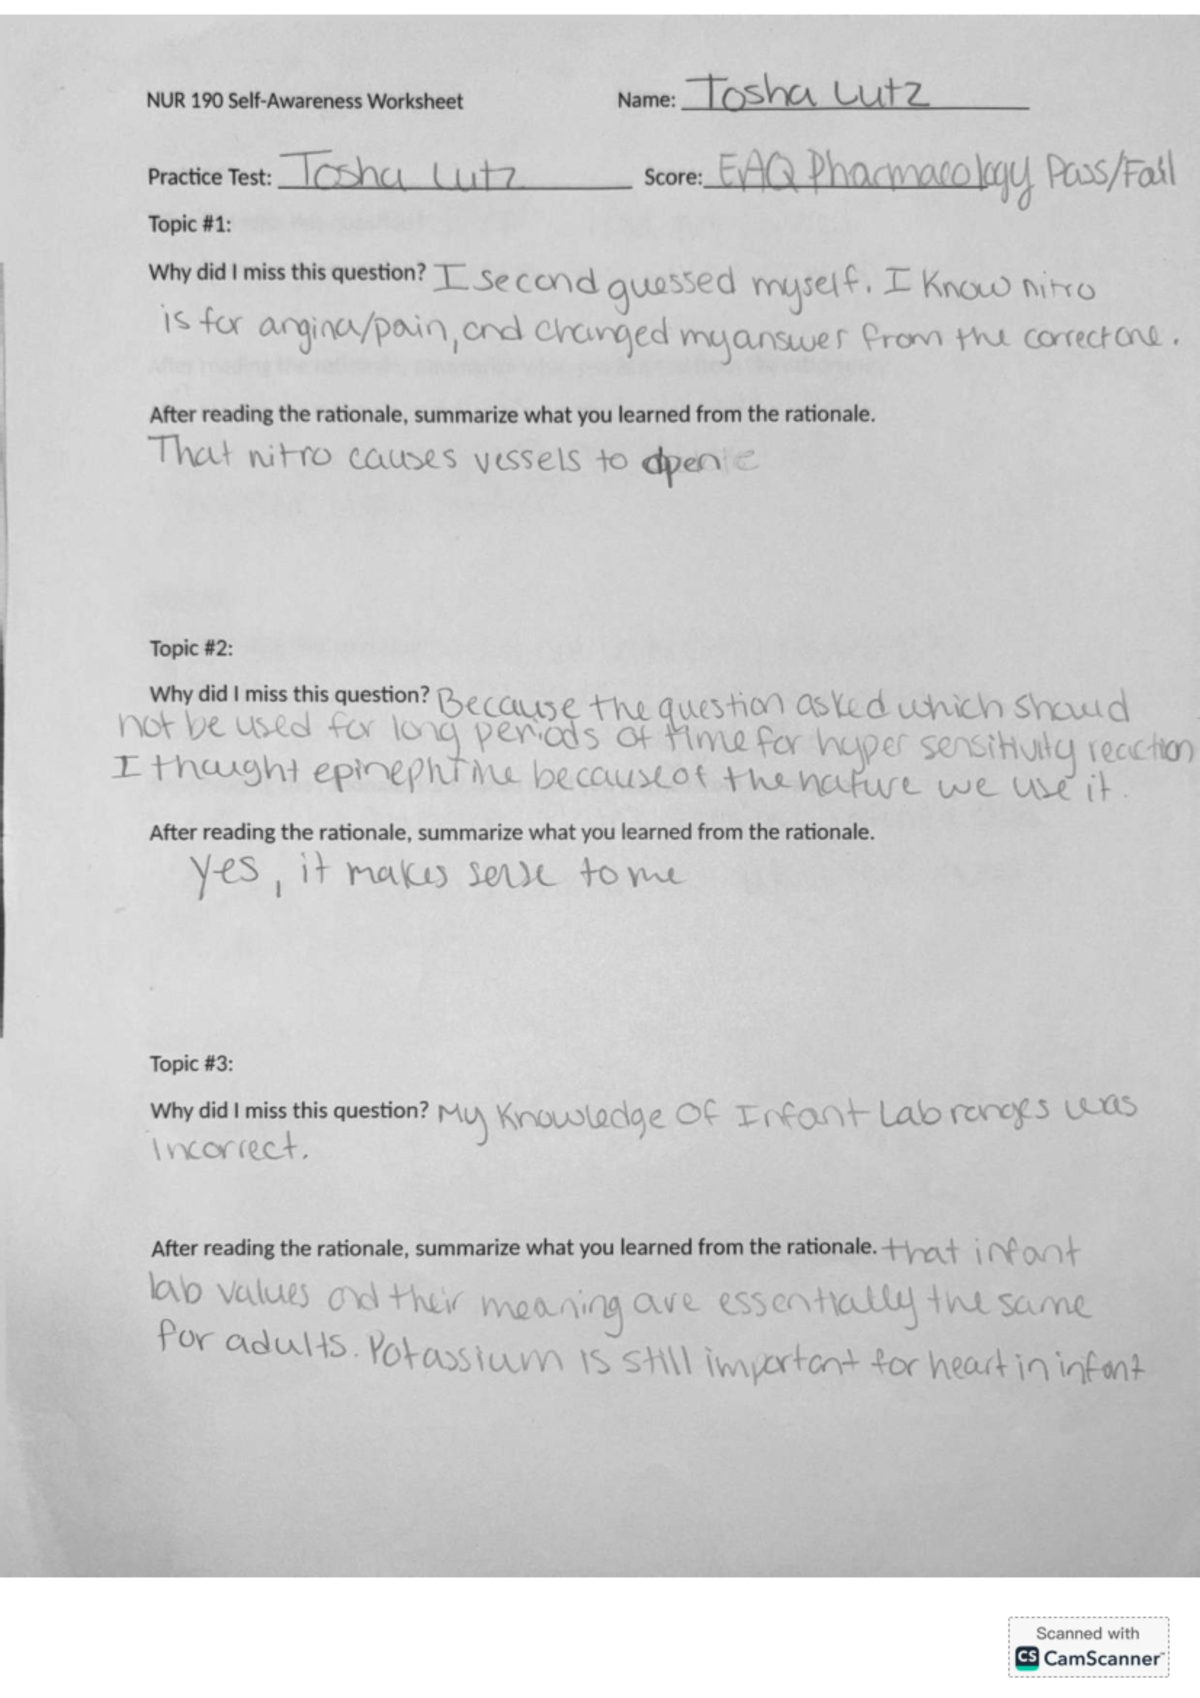 NUR 190 Self-Awareness Worksheet Name: Tosha Lutz
Practice Test: Tosha Lutz Score: EAQ Pharmacology Pass/Fail
Topic #1:
Why did I miss this question? I second guessed myself. I know nitro
is for angina/pain, and changed my answer from the correct one.
After reading the rationale, summarize what you learned from the rationale.
That nitro causes vessels to open
Topic #2:
Why did I miss this question? Because the question asked which should
not be used for long periods of time for hyper sensitivity reaction
I thought epinephrine because of the nature we use it.
After reading the rationale, summarize what you learned from the rationale.
yes, it makes sense to me
Topic #3:
Why did I miss this question? My Knowledge Of Infant Lab ranges was
incorrect.
After reading the rationale, summarize what you learned from the rationale. that infant
lab values and their meaning are essentially the same
for adults. Potassium is still important for heart in infant
Scanned with
CS CamScanner